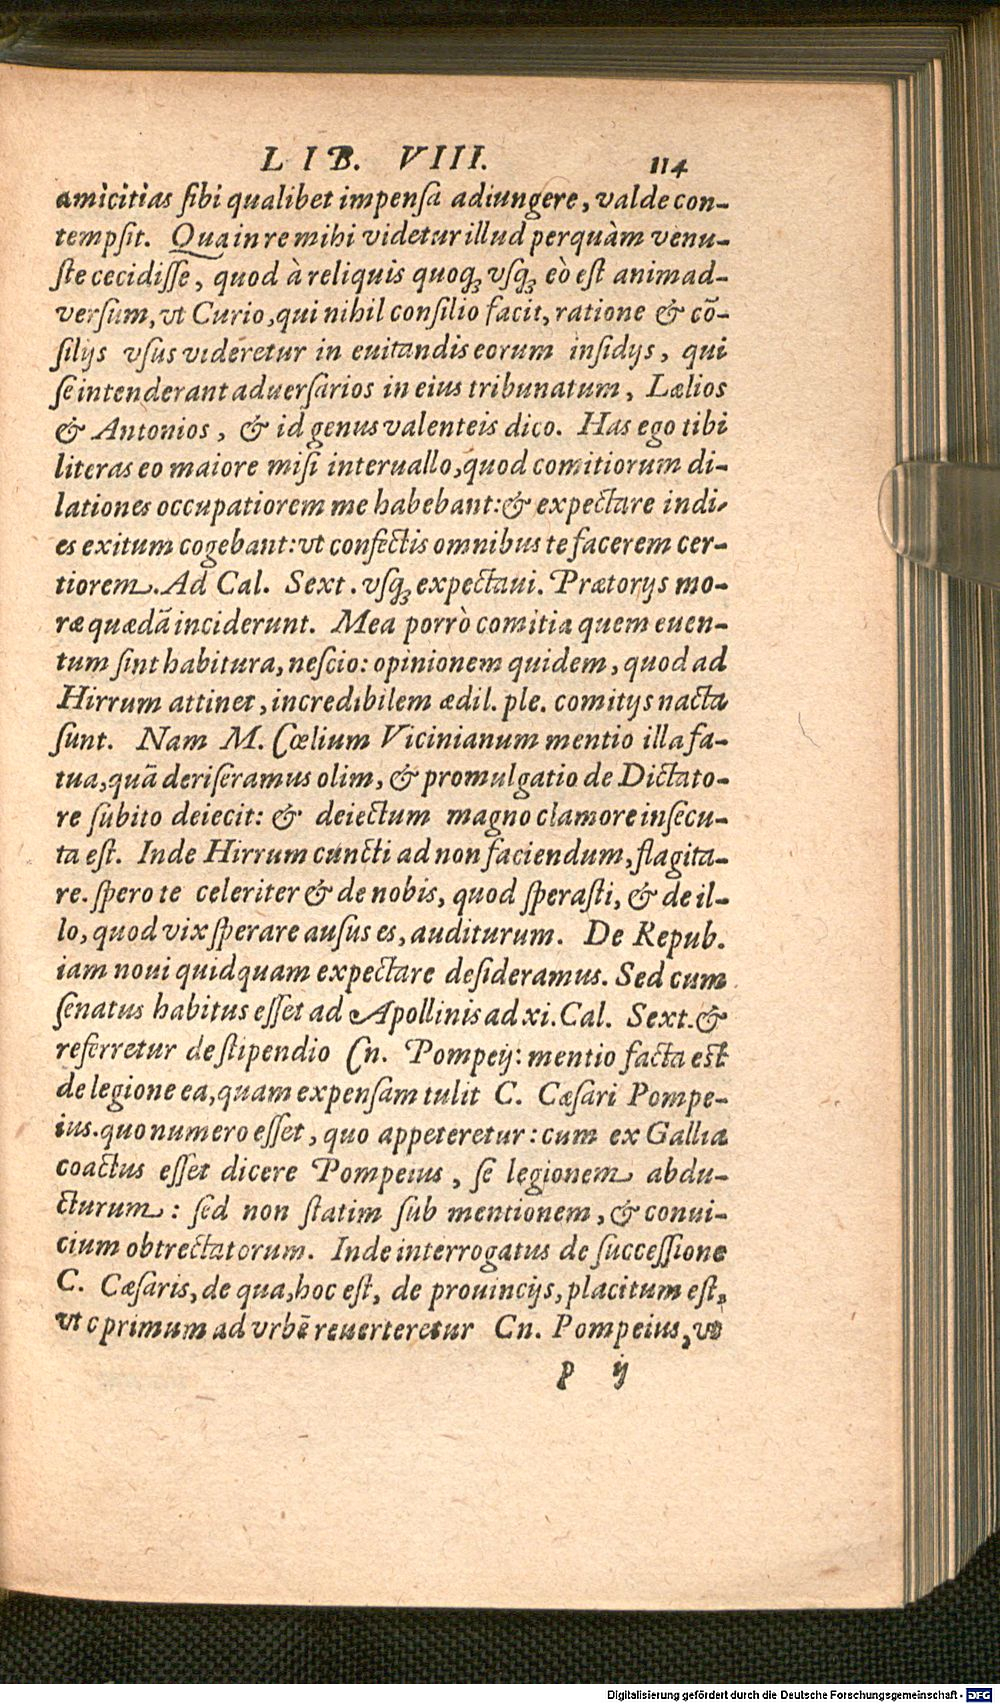 LIB. VIII. 114
amicitias sibi qualibet impensa adiungere, valde con-
tempsit. Qua in re mihi videtur illud perquàm venu-
ste cecidisse, quod à reliquis quoq; vsq; eò est animad-
versum, vt Curio, qui nihil consilio facit, ratione & cō-
silijs vsus videretur in euitandis eorum insidijs, qui
se intenderant aduersarios in eius tribunatum, Lælios
& Antonios, & id genus valenteis dico. Has ego tibi
literas eo maiore misi interuallo, quod comitiorum di-
lationes occupatiorem me habebant: & expectare indi-
es exitum cogebant: vt confectis omnibus te facerem cer-
tiorem. Ad Cal. Sext. vsq; expectaui. Prætorijs mo-
ræ quædā inciderunt. Mea porrò comitia quem euen-
tum sint habitura, nescio: opinionem quidem, quod ad
Hirrum attinet, incredibilem ædil. ple. comitijs nacta
sunt. Nam M. Cœlium Vicinianum mentio illa fa-
tua, quā deriseramus olim, & promulgatio de Dictato-
re subito deiecit: & deiectum magno clamore insecu-
ta est. Inde Hirrum cuncti ad non faciendum, flagita-
re. spero te celeriter & de nobis, quod sperasti, & de il-
lo, quod vix sperare ausus es, auditurum. De Repub.
iam noui quidquam expectare desideramus. Sed cum
senatus habitus esset ad Apollinis ad xi. Cal. Sext. &
referretur de stipendio Cn. Pompeij: mentio facta est
de legione ea, quam expensam tulit C. Cæsari Pompe-
ius. quo numero esset, quo appeteretur: cum ex Gallia
coactus esset dicere Pompeius, se legionem abdu-
cturum: sed non statim sub mentionem, & conui-
cium obtrectatorum. Inde interrogatus de successione
C. Cæsaris, de qua, hoc est, de prouincijs, placitum est,
vt cprimum ad vrbē reuerteretur Cn. Pompeius, vt
p ij
Digitalisierung gefördert durch die Deutsche Forschungsgemeinschaft - DFG